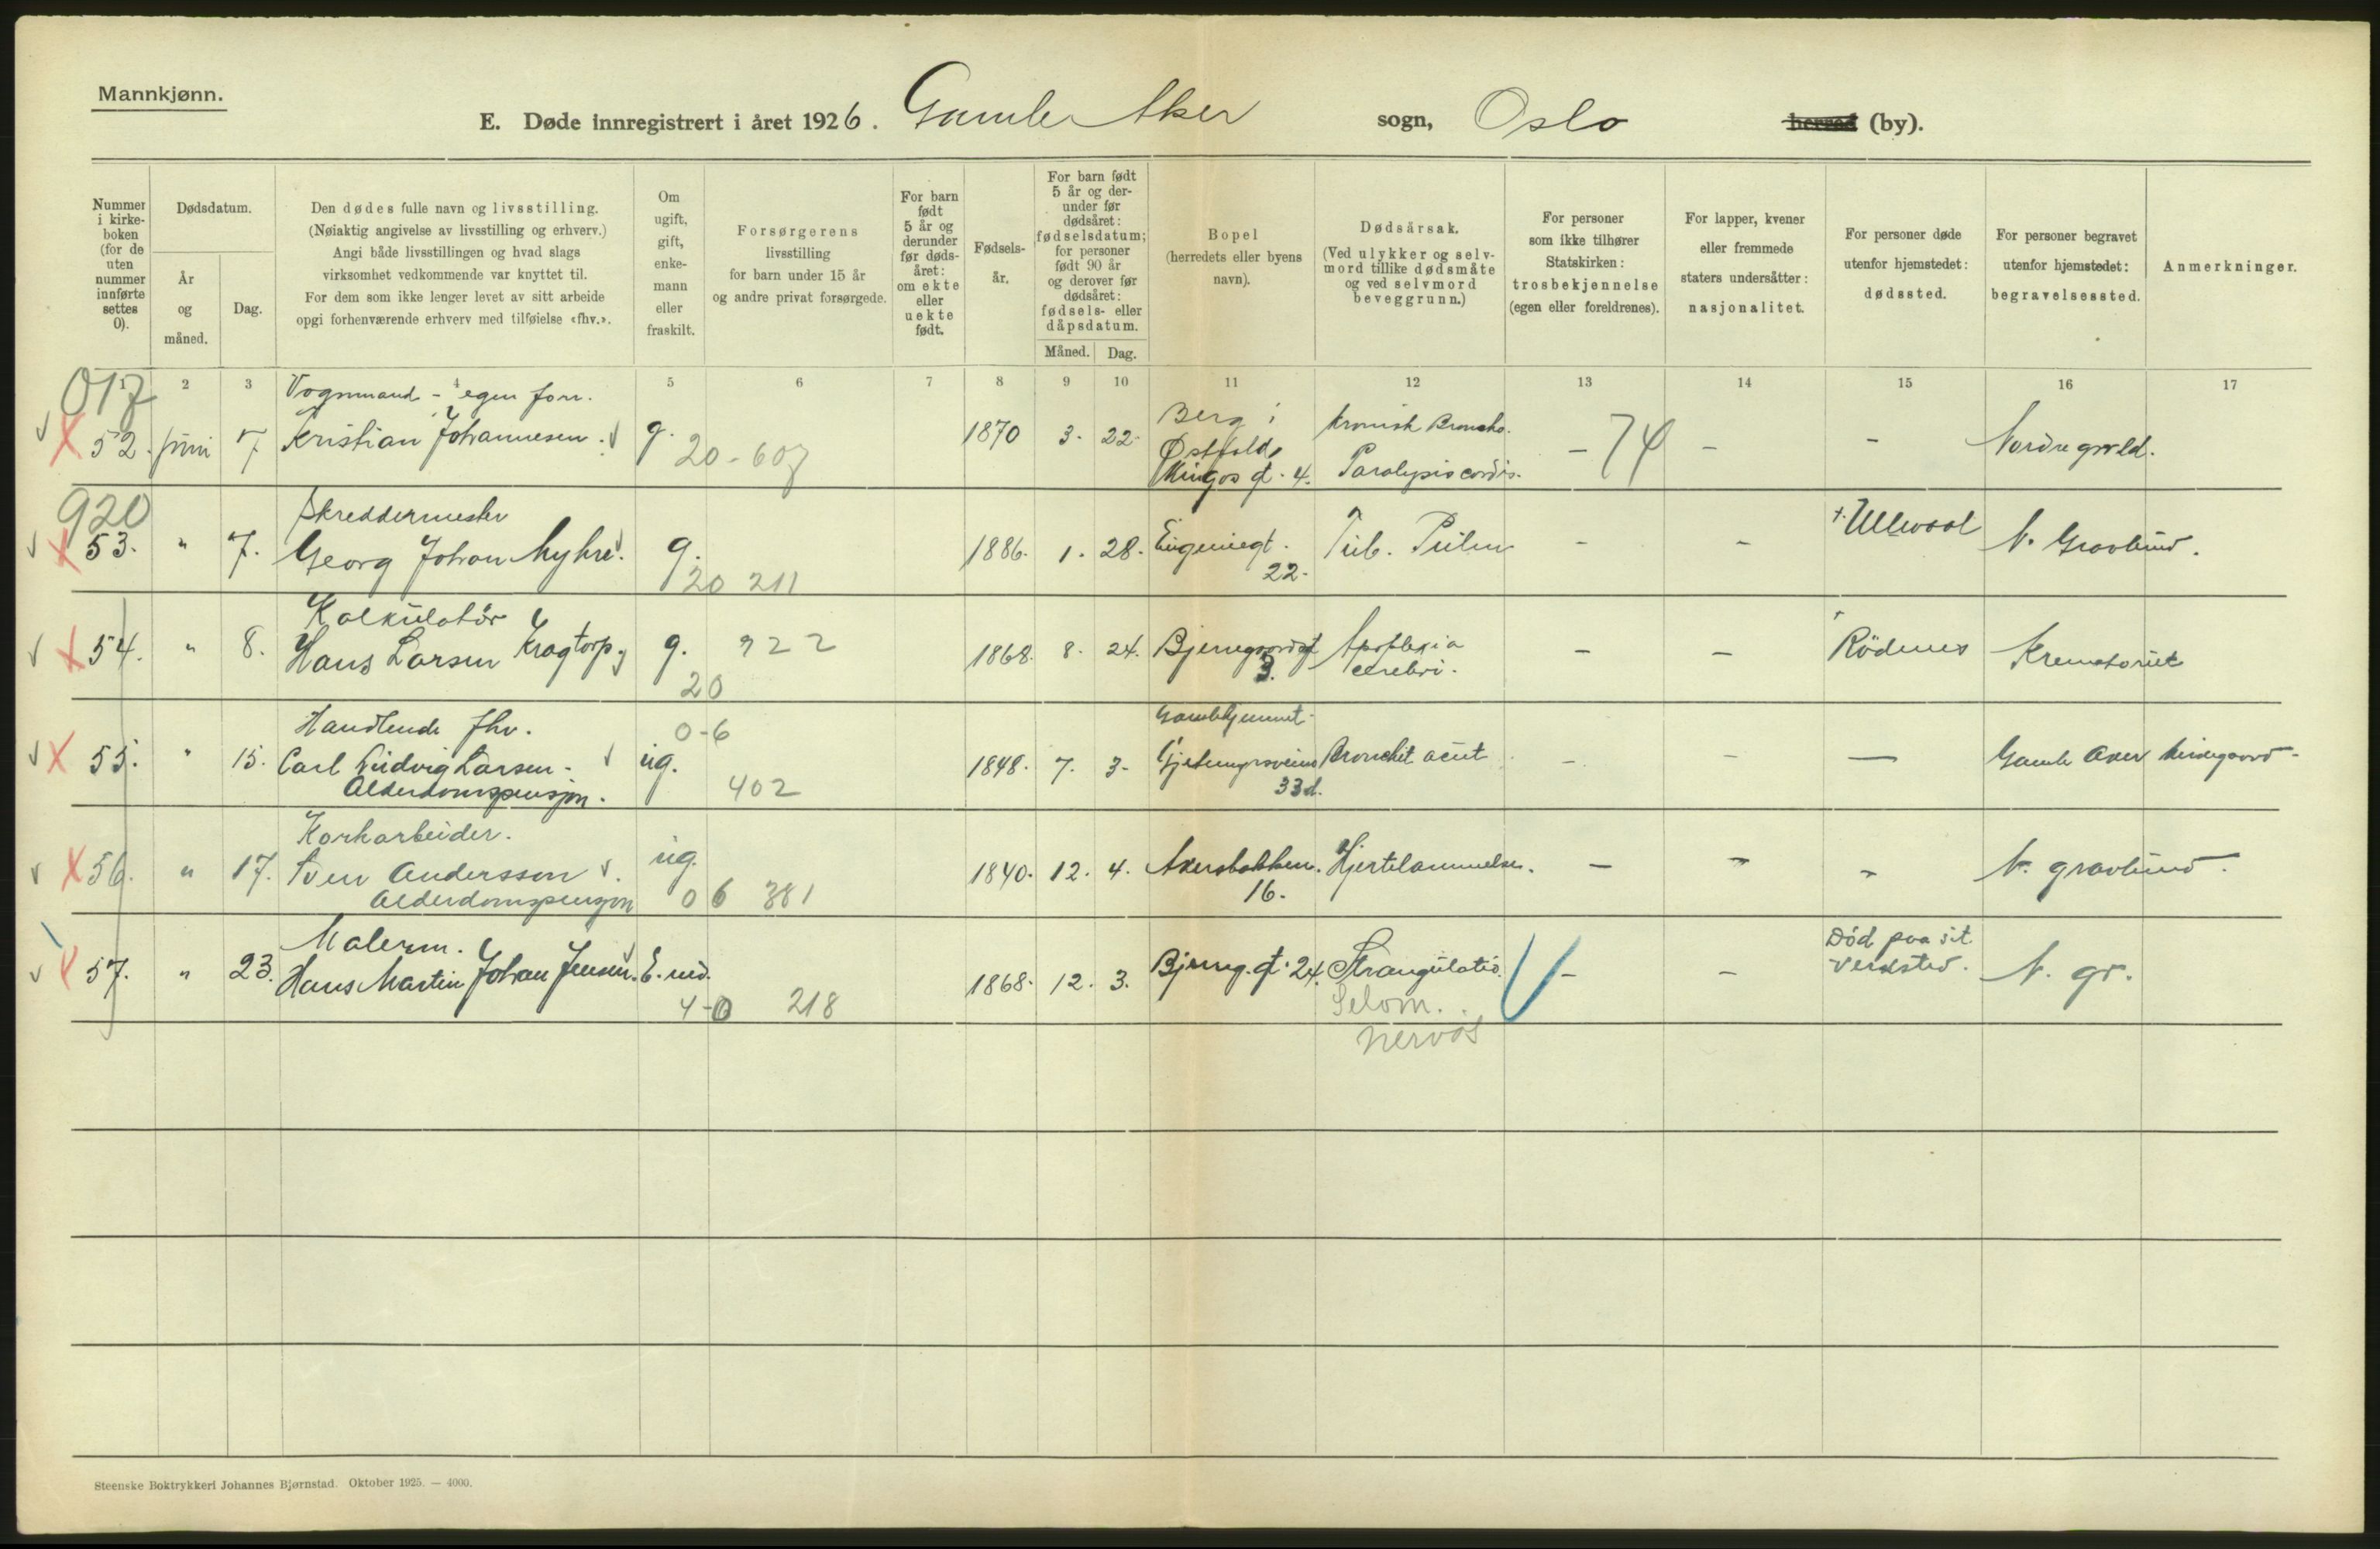 Mannkjønn.
E. Døde innregistrert i året 1926. Gamle Aker sogn, Oslo herred (by).
Nummer i kirkeboken (for de uten nummer innførte settes 0).
Dødsdatum.
År og måned.
Dag.
Den dødes fulle navn og livsstilling.
(Nøiaktig angivelse av livsstilling og erhverv.)
Angi både livsstillingen og hvad slags
virksomhet vedkommende var knyttet til.
For dem som ikke lenger levet av sitt arbeide
opgi forhenværende erhverv med tilføielse «fhv.».
Om ugift, gift, enkemann eller fraskilt.
Forsørgerens
livsstilling
for barn under 15 år
og andre privat forsørgede.
For barn født 5 år og derunder før dødsåret: om ekte eller uekte født.
Fødselsår.
For barn født 5 år og derunder før dødsåret: fødselsdatum; for personer født 90 år og derover før dødsåret: fødsels- eller dåpsdatum.
Måned. Dag.
Bopel
(herredets eller byens
navn).
Dødsårsak.
(Ved ulykker og selvmord tillike dødsmåte og ved selvmord beveggrunn.)
For personer
som ikke tilhører
Statskirken:
trosbekjennelse
(egen eller foreldrenes).
For lapper, kvener
eller fremmede
staters undersåtter:
nasjonalitet.
For personer døde
utenfor hjemstedet:
dødssted.
For personer begravet
utenfor hjemstedet:
begravelsessted.
Anmerkninger.
1 2 3 4 5 6 7 8 9 10 11 12 13 14 15 16 17
017
Vognmand - egen forr.
52. juni 7 Kristian Johannesen. g. 20-607 1870 3. 22. Berg i Østfold Kingos gt. 4. Kronisk Broncho. Paralysis cordis. - 74 - - Nordre gravld.
920
Skreddermester
53. " 7. Georg Johan Myhre. g. 20 211 1886. 1. 28. Eugeniegt. 22. Tub. Pulm - - Ullevaal N. Gravlund.
Kalkulatør
54. " 8. Hans Larsen Kragtorp g. 922 20 1868. 8. 24. Bjerregaardsgt 3. Apoplexia cerebri. - - Rödenes Krematoriet
Handlende fhv.
55. " 15. Carl Ludvig Larsen. ug. 0-6 402 1848. 7. 3. Gamlehjemmet. Gjetemyrsveien 33d. Bronchit acut - - - Gamle Aker kirkegaard.
Alderdomspensjon.
Korkarbeider.
56. " 17. Sven Andersson. ug. 06 381 1840. 12. 4. Akersbakken. 16. Hjertelammelse. - - - N. gravlund.
Alderdomspensjon
Malerm.
57. " 23. Hans Martin Johan Jensen. E. md. 4-0 218 1868. 12. 3. Bjerreg. gt. 24. Strangulatio. Selvm. nervøs - - Död paa sit verksted. N. gr.
Steenske Boktrykkeri Johannes Bjørnstad. Oktober 1925. — 4000.